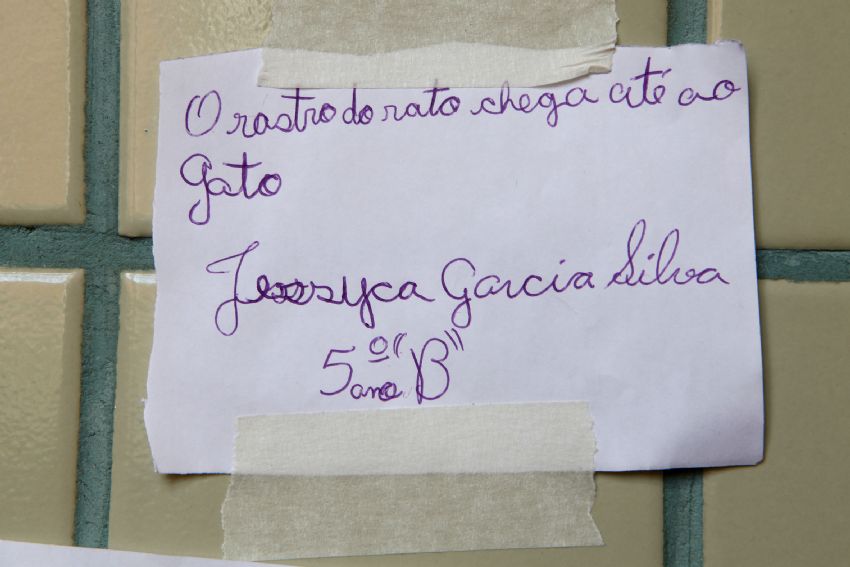 O rastro do rato chega até ao
gato
Jessyca Garcia Silva
5º ano "B"